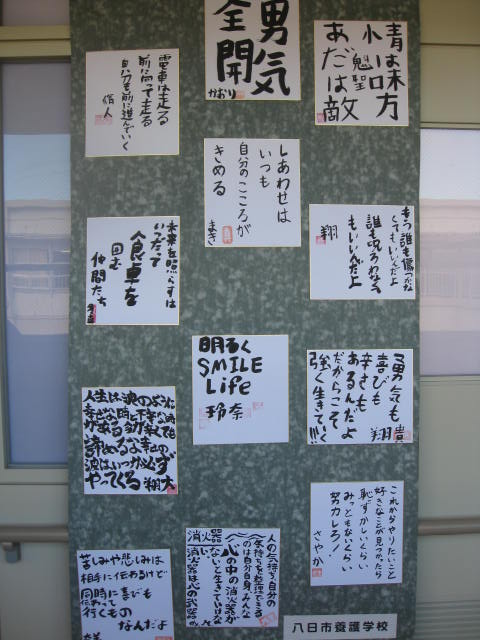 男気
全開
かおり
青は味方
小魁口聖
あだは敵
電車は走る
前に向って走る
自分も前に進んでいく
しあわせは
いつも
自分のこころが
きめる
まき
もう誰も傷つかな
くてもいいんだよ
誰も呪わなく
もいいんだよ
翔
未来を照らすは
いつだって
食卓を
囲む
仲間たち
明るく
SMILE
Life
玲奈
勇気も
喜びも
辛さも
あるんだよ
だからこそ
強く生きて!!!
翔貴
人生は波のように
幸せな時と不幸な時
がある
諦めるな幸せの
波はいつか必ず
やってくる
翔大
これからやりたいこと
好きなことが見つかったら
恥ずかしいくらい
みっともないくらい
努力しろ!
さやか
苦しみや悲しみは
相手に伝わるけど
同時に喜びも
伝わって
行くもの
なんだよ
人の気持ち、自分の
気持ちを整理できる
のは自分自身、みんな
心の中の消火器が
ないと生きていけな
い。
消火器は心の武器
八日市養護学校